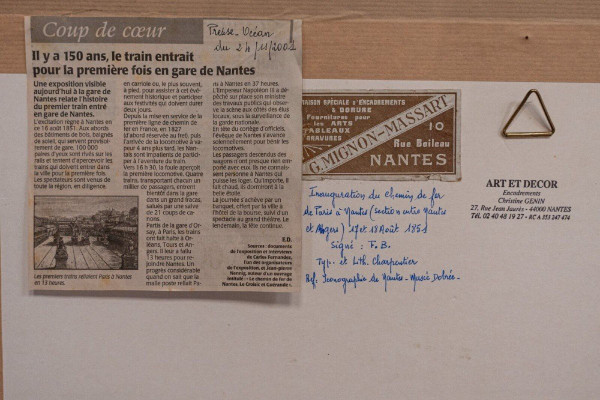 Coup de cœur
Presse-Océan
du 24/11/2001
Il y a 150 ans, le train entrait
pour la première fois en gare de Nantes
Une exposition visible
aujourd'hui à la gare de
Nantes relate l'histoire
du premier train entré
en gare de Nantes.
L'excitation règne à Nantes en
ce 16 août 1851. Aux abords
des bâtiments de bois, baignés
de soleil, qui servent provisoi-
rement de gare, 100 000
paires d'yeux sont rivés sur les
rails et tentent d'apercevoir les
trains qui doivent entrer dans
la ville pour la première fois.
Les spectateurs sont venus de
toute la région, en diligence,
Les premiers trains reliaient Paris à Nantes
en 13 heures.
en carriole ou, le plus souvent,
à pied, pour assister à cet évé-
nement historique et participer
aux festivités qui doivent durer
deux jours.
Depuis la mise en service de la
première ligne de chemin de
fer en France, en 1827
d'abord réservée au fret, puis
l'arrivée de la locomotive à va-
peur 4 ans plus tard, les Nan-
tais sont impatients de partici-
per à l'aventure du train.
Vers 16 h 30, la foule aperçoit la
première locomotive. Quatre
trains, transportant chacun un
millier de passagers, entrent
bientôt dans la gare
dans un grand fracas,
salués par une salve
de 21 coups de ca-
nons.
Partis de la gare d'Or-
say, à Paris, les trains
ont fait halte à Or-
léans, Tours et An-
gers. Il leur a fallu
13 heures pour re-
joindre Nantes. Un
progrès considérable
quand on sait que la
malle poste reliait Pa-
ris à Nantes en 37 heures.
L'Empereur Napoléon III a dé-
pêché sur place son ministre
des travaux publics qui obser-
ve la scène aux côtés des élus
locaux, sous la surveillance de
la garde nationale.
Un site du collège d'officiels,
l'évêque de Nantes s'avance
solennellement pour bénir les
locomotives.
Les passagers descendus des
wagons n'ont presque rien em-
porté avec eux. Ils ne connais-
sent personne à Nantes qui
puisse les loger. Qu'importe, il
fait chaud, ils dormiront à la
belle étoile.
La journée s'achève par un
banquet, offert par la ville à
l'hôtel de la bourse, suivi d'un
spectacle au grand théâtre. Le
lendemain, la fête continue.
E.D.
Sources : documents
de l'exposition et interviews
de Carlos Fernandez,
l'un des organisateurs
de l'exposition, et Jean-pierre
Nennig, auteur d'un ouvrage
intitulé « Le chemin de fer de
Nantes, Le Croisic et Guérande ».
MAISON SPÉCIALE D'ENCADREMENTS
& DORURE
Fournitures pour
les ARTS
TABLEAUX
GRAVURES
G. MIGNON-MASSART
10
Rue Boileau
NANTES
Inauguration du chemin de fer
de Paris à Nantes (section entre Nantes
et Angers) 17 et 18 Août 1851
Signé : F. B.
Typ. et Lith. Charpentier
Réf. Iconographie de Nantes - Musée Dobrée -
ART ET DECOR
Encadrements
Christine GENIN
27, Rue Jean Jaurès - 44000 NANTES
Tél. 02 40 48 19 27 - RC A 353 247 474